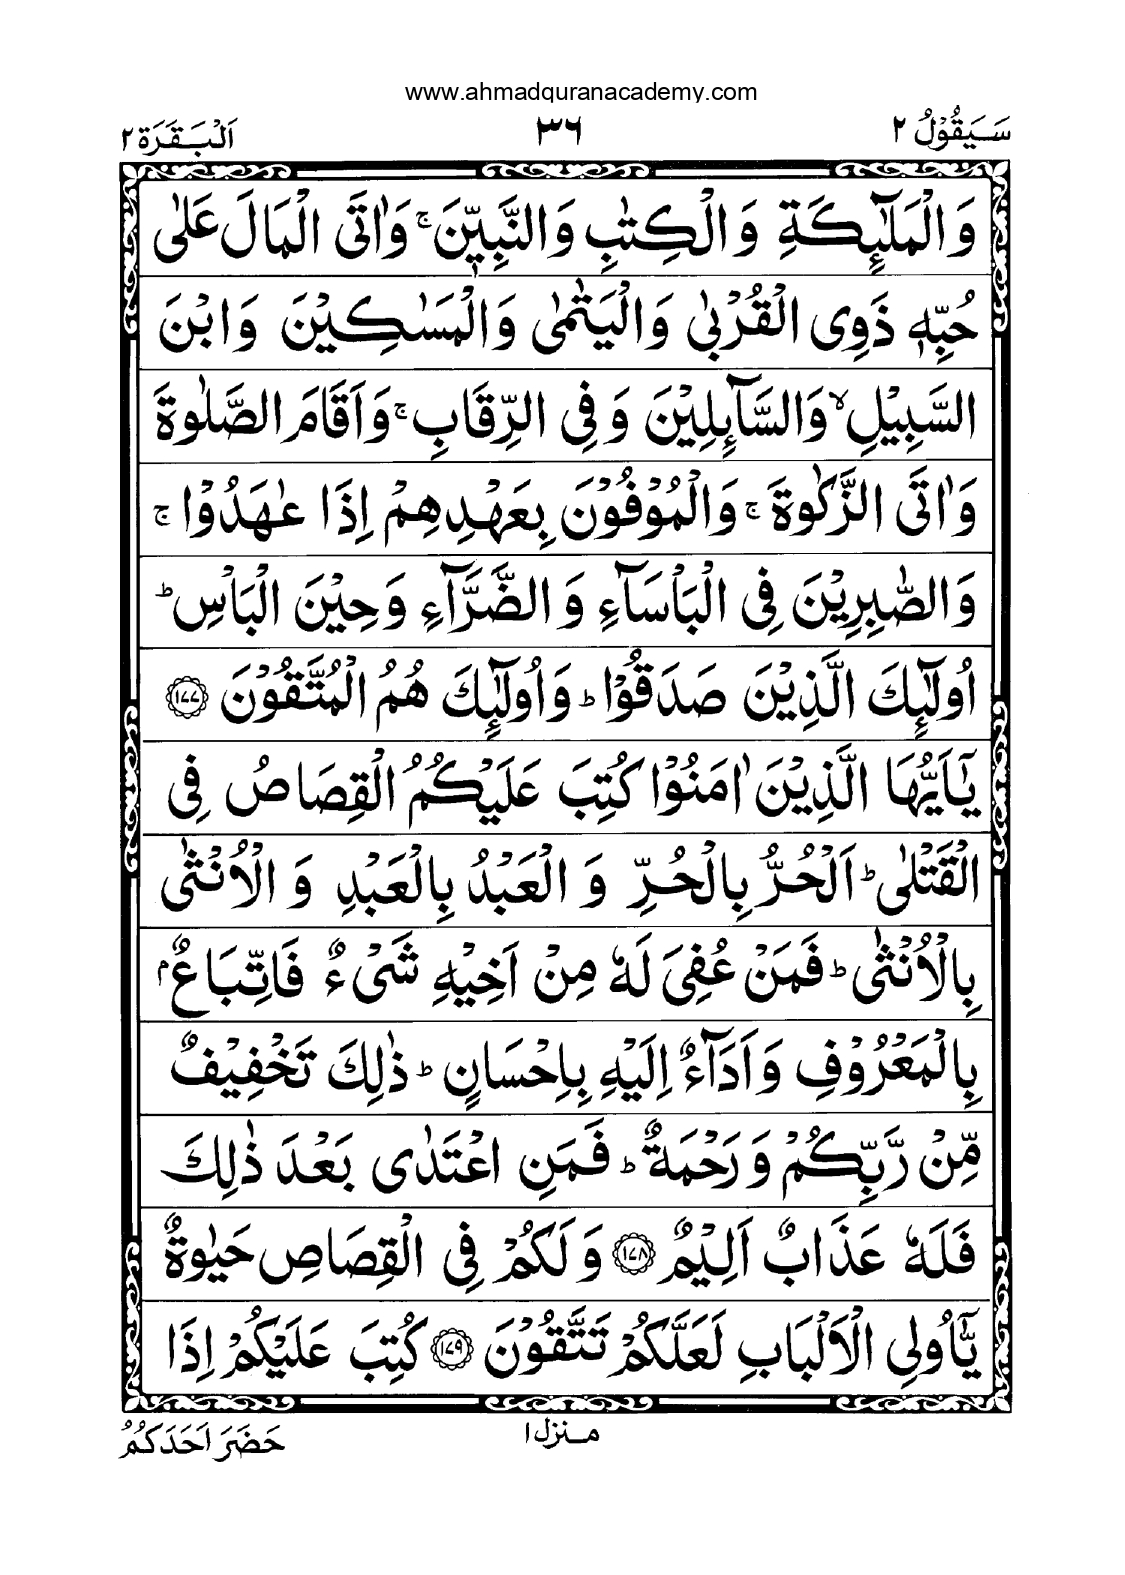 www.ahmadquranacademy.com
سَيَقُوْلُ ٢
٣٦
اَلْبَقَرَة ٢
وَالْمَلٰٓئِكَةِ وَالْكِتٰبِ وَالنَّبِيّٖنَ ۚ وَاٰتَى الْمَالَ عَلٰى
حُبِّهٖ ذَوِى الْقُرْبٰى وَالْيَتٰمٰى وَالْمَسٰكِيْنَ وَابْنَ
السَّبِيْلِ ۙ وَالسَّآئِلِيْنَ وَفِى الرِّقَابِ ۚ وَاَقَامَ الصَّلٰوةَ
وَاٰتَى الزَّكٰوةَ ۚ وَالْمُوْفُوْنَ بِعَهْدِهِمْ اِذَا عٰهَدُوْا ۚ
وَالصّٰبِرِيْنَ فِى الْبَاْسَآءِ وَالضَّرَّآءِ وَحِيْنَ الْبَاْسِ ؕ
اُولٰٓئِكَ الَّذِيْنَ صَدَقُوْا ؕ وَاُولٰٓئِكَ هُمُ الْمُتَّقُوْنَ ١٧٧
يٰٓاَيُّهَا الَّذِيْنَ اٰمَنُوْا كُتِبَ عَلَيْكُمُ الْقِصَاصُ فِى
الْقَتْلٰى ؕ اَلْحُرُّ بِالْحُرِّ وَالْعَبْدُ بِالْعَبْدِ وَالْاُنْثٰى
بِالْاُنْثٰى ؕ فَمَنْ عُفِىَ لَهٗ مِنْ اَخِيْهِ شَىْءٌ فَاتِّبَاعٌۢ
بِالْمَعْرُوْفِ وَاَدَآءٌ اِلَيْهِ بِاِحْسَانٍ ؕ ذٰلِكَ تَخْفِيْفٌ
مِّنْ رَّبِّكُمْ وَرَحْمَةٌ ؕ فَمَنِ اعْتَدٰى بَعْدَ ذٰلِكَ
فَلَهٗ عَذَابٌ اَلِيْمٌ ١٧٨ وَلَكُمْ فِى الْقِصَاصِ حَيٰوةٌ
يّٰٓاُولِى الْاَلْبَابِ لَعَلَّكُمْ تَتَّقُوْنَ ١٧٩ كُتِبَ عَلَيْكُمْ اِذَا
منزل ١
حَضَرَ اَحَدَكُمُ